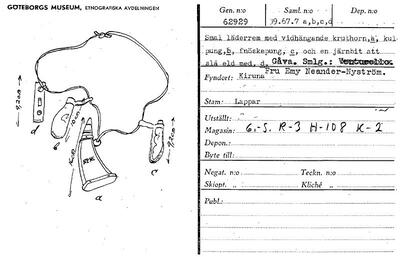 GÖTEBORGS MUSEUM, ETNOGRAFISKA AVDELNINGEN
d
b
a
c
Gen. n:o Saml. n:o Dep. n:o
62929 39.67.7 a,b,c,d
Smal läderrem med vidhängande kruthorn, a, kul-
pung, b, fnöskepung, c, och en järnbit att
slå eld med, d. Gåva. Smlg.:
Fru Emy Neander-Nyström.
Fyndort: Kiruna
Stam: Lappar
Utställt:
Magasin: 6.-S. R-3 H-108 K-2
Depon.:
Byte till:
Negat. n:o Teckn. n:o
Skiopt. „ Kliché „
Publ.: